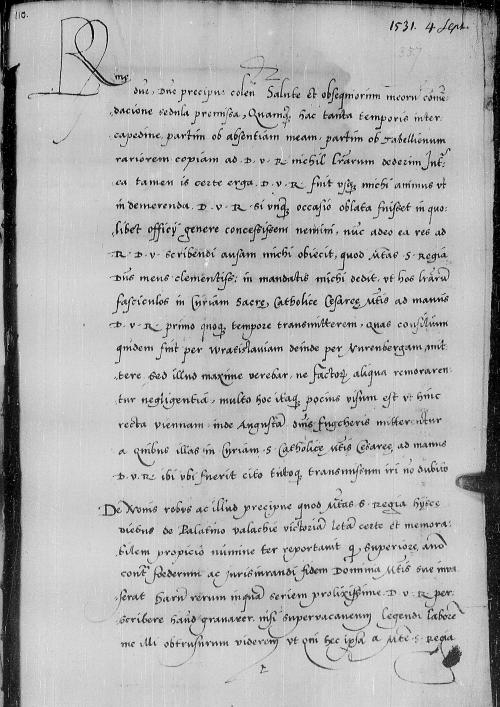 110.
1531. 4 Sept.
357
Rme
dne, Dne precipue colen Salute et obsequiorum meorum comen
dacione sedula premissa, Quamq hac tanta temporis inter
capedine, partim ob absentiam meam, partim ob Tabellionum
rariorem copiam ad. D. v. R nichil lrarum dederim,
ea tamen is certe erga. D. v. R fuit usq michi animus ut
in demerenda. D. v. R. si unq occasio oblata fuisset in quo
libet officij genere concessissem nemini, nuc adeo ea res ad
R. D. v. scribendi ansam michi obiecit, quod Mtas. S. Regia
Dns meus clementiss. in mandatis michi dedit, ut hos lraru
fasciculos in Curiam Sacre, Catholice Cesaree Mtis ad manus
D. v. R. primo quoq tempore transmitterem, quas consilium
quidem fuit per Wratislaviam deinde per Nurenbergam mit
tere, sed illud maxime verebar, ne factorum aliqua remoraren
tur negligentia, multo hoc itaq pocius visum est ut hinc
recta viennam inde Augustam dnis fuggheris mitterentur
a quibus illas in Curiam. S. Catholice Mtis Cesaree, ad manus
D. v. R. ibi ubi fuerit cito tutoq transmissum iri no dubito
De Novis rebus ac illud precipue quod Mtas. S. Regia hysce
diebus de Palatino valachie victoriam letam certe et memora
bilem propicio numine ter reportavit q superiore, anno
contra foederum ac jurisiurandi fidem Dominia Mtis sue inva
serat harum rerum inquam seriem prolixissime. D. v. R per
scribere haud gravarer, nisi supervacaneum legendi laborem
me illi obtrusurum viderem, ut qui hec ipsa a Mte. S. Regia